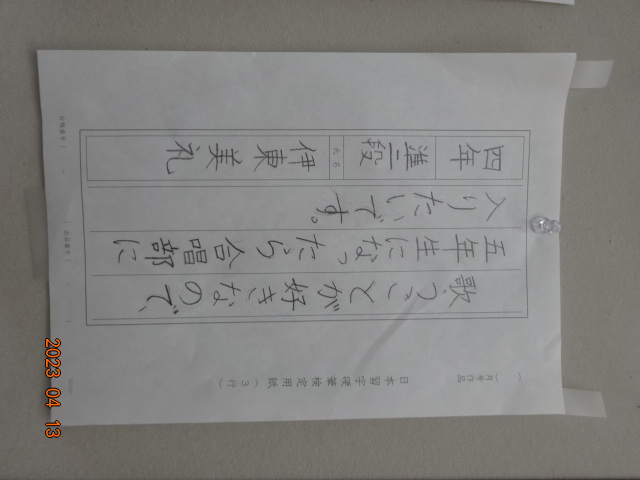 一月号作品
日本習字硬筆検定用紙(3行)
歌うことが好きなので、
五年生になったら合唱部に
入りたいです。
四年
準二段
氏名
伊東美礼
2023 04 13